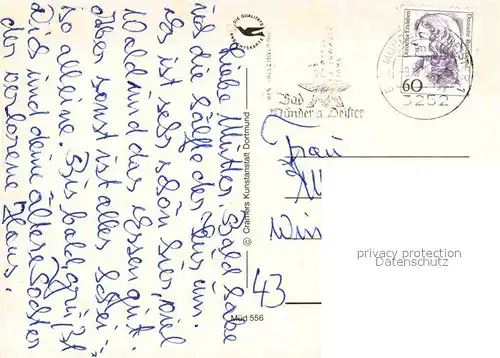 Liebe Mutter. Bald habe
ich die Hälfte der Kur um.
Es ist sehr schön hier, viel
Wald und das Essen gut.
Aber sonst ist alles
so alleine. Bis bald, grüßt
Dich und deine ältere Tochter
der verlorene Haus.
DIE QUALITÄTS
ANSICHTSKARTE
© Cramers Kunstanstalt Dortmund
Müd 556
Bad
Münder a. Deister
3252
Deutsche Bundespost
60
Frau
M
Win
43
privacy protection
Datenschutz